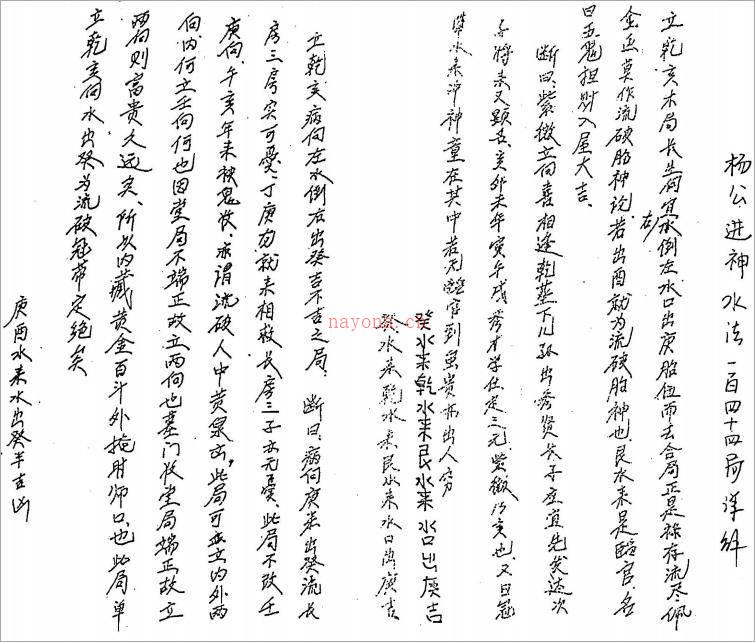 杨公进神水法一百四十四局详解
立乾亥木局长生向宜右水倒左水口出庚胎位而去合局正是禄存流尽佩
金鱼莫作流破胎神论若出酉就为流破胎神也艮水来是临官名
曰五鬼担财入屋大吉
断曰紫微立向喜相逢乾葬下儿孙出秀贤长子应宜先发达次
子将来又显去亥卯未年寅午戌秀才学仕定三元紫微乃亥也又曰冠
带水来冲神童在其中若无临官到虽贵亦出人穷
癸水来乾水来艮水来水口出庚吉
癸水来乾水来艮水来水口出庚吉
立乾亥病向左水倒右出癸吉不吉之局断曰病向庚来出癸流长
房三房实可忧丁庚方就来相救长房三子亦无忧此局不改壬
庚向午亥年来被鬼收亦谓流破人中黄泉凶此局可立内外两
向内何立壬向何也因堂局不端正故立两向也墓门收堂局端正故立
两向则富贵久远矣所以内藏黄金百斗外掩肘师口也此局单
立乾亥向水出癸为流破冠带定绝矣
庚酉水来水出癸半吉凶
nayona.cn